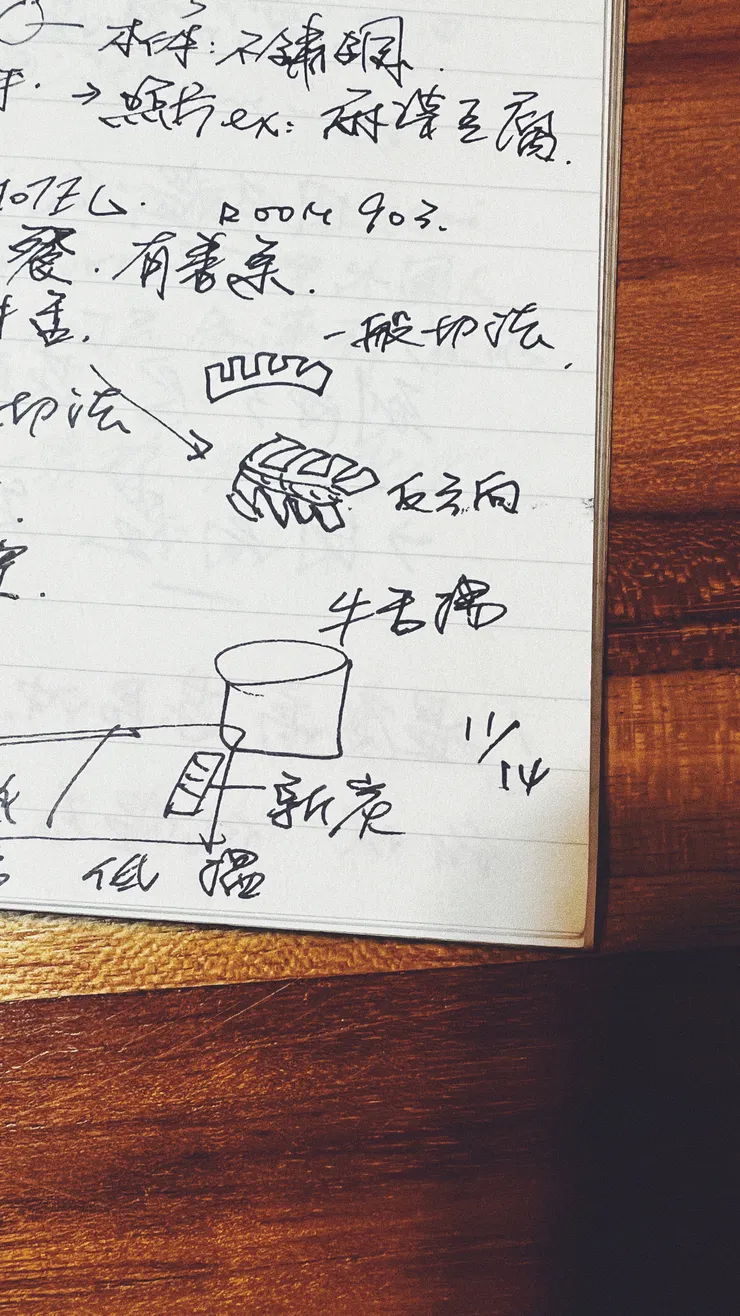 本体:不鏽鋼.
→照片 ex: 麻婆豆腐.
HOTEL. ROOM 903.
餐.有善系.
牛舌.
一般切法.
切法
反方向
牛舌捲
11/14
新炭
低溫